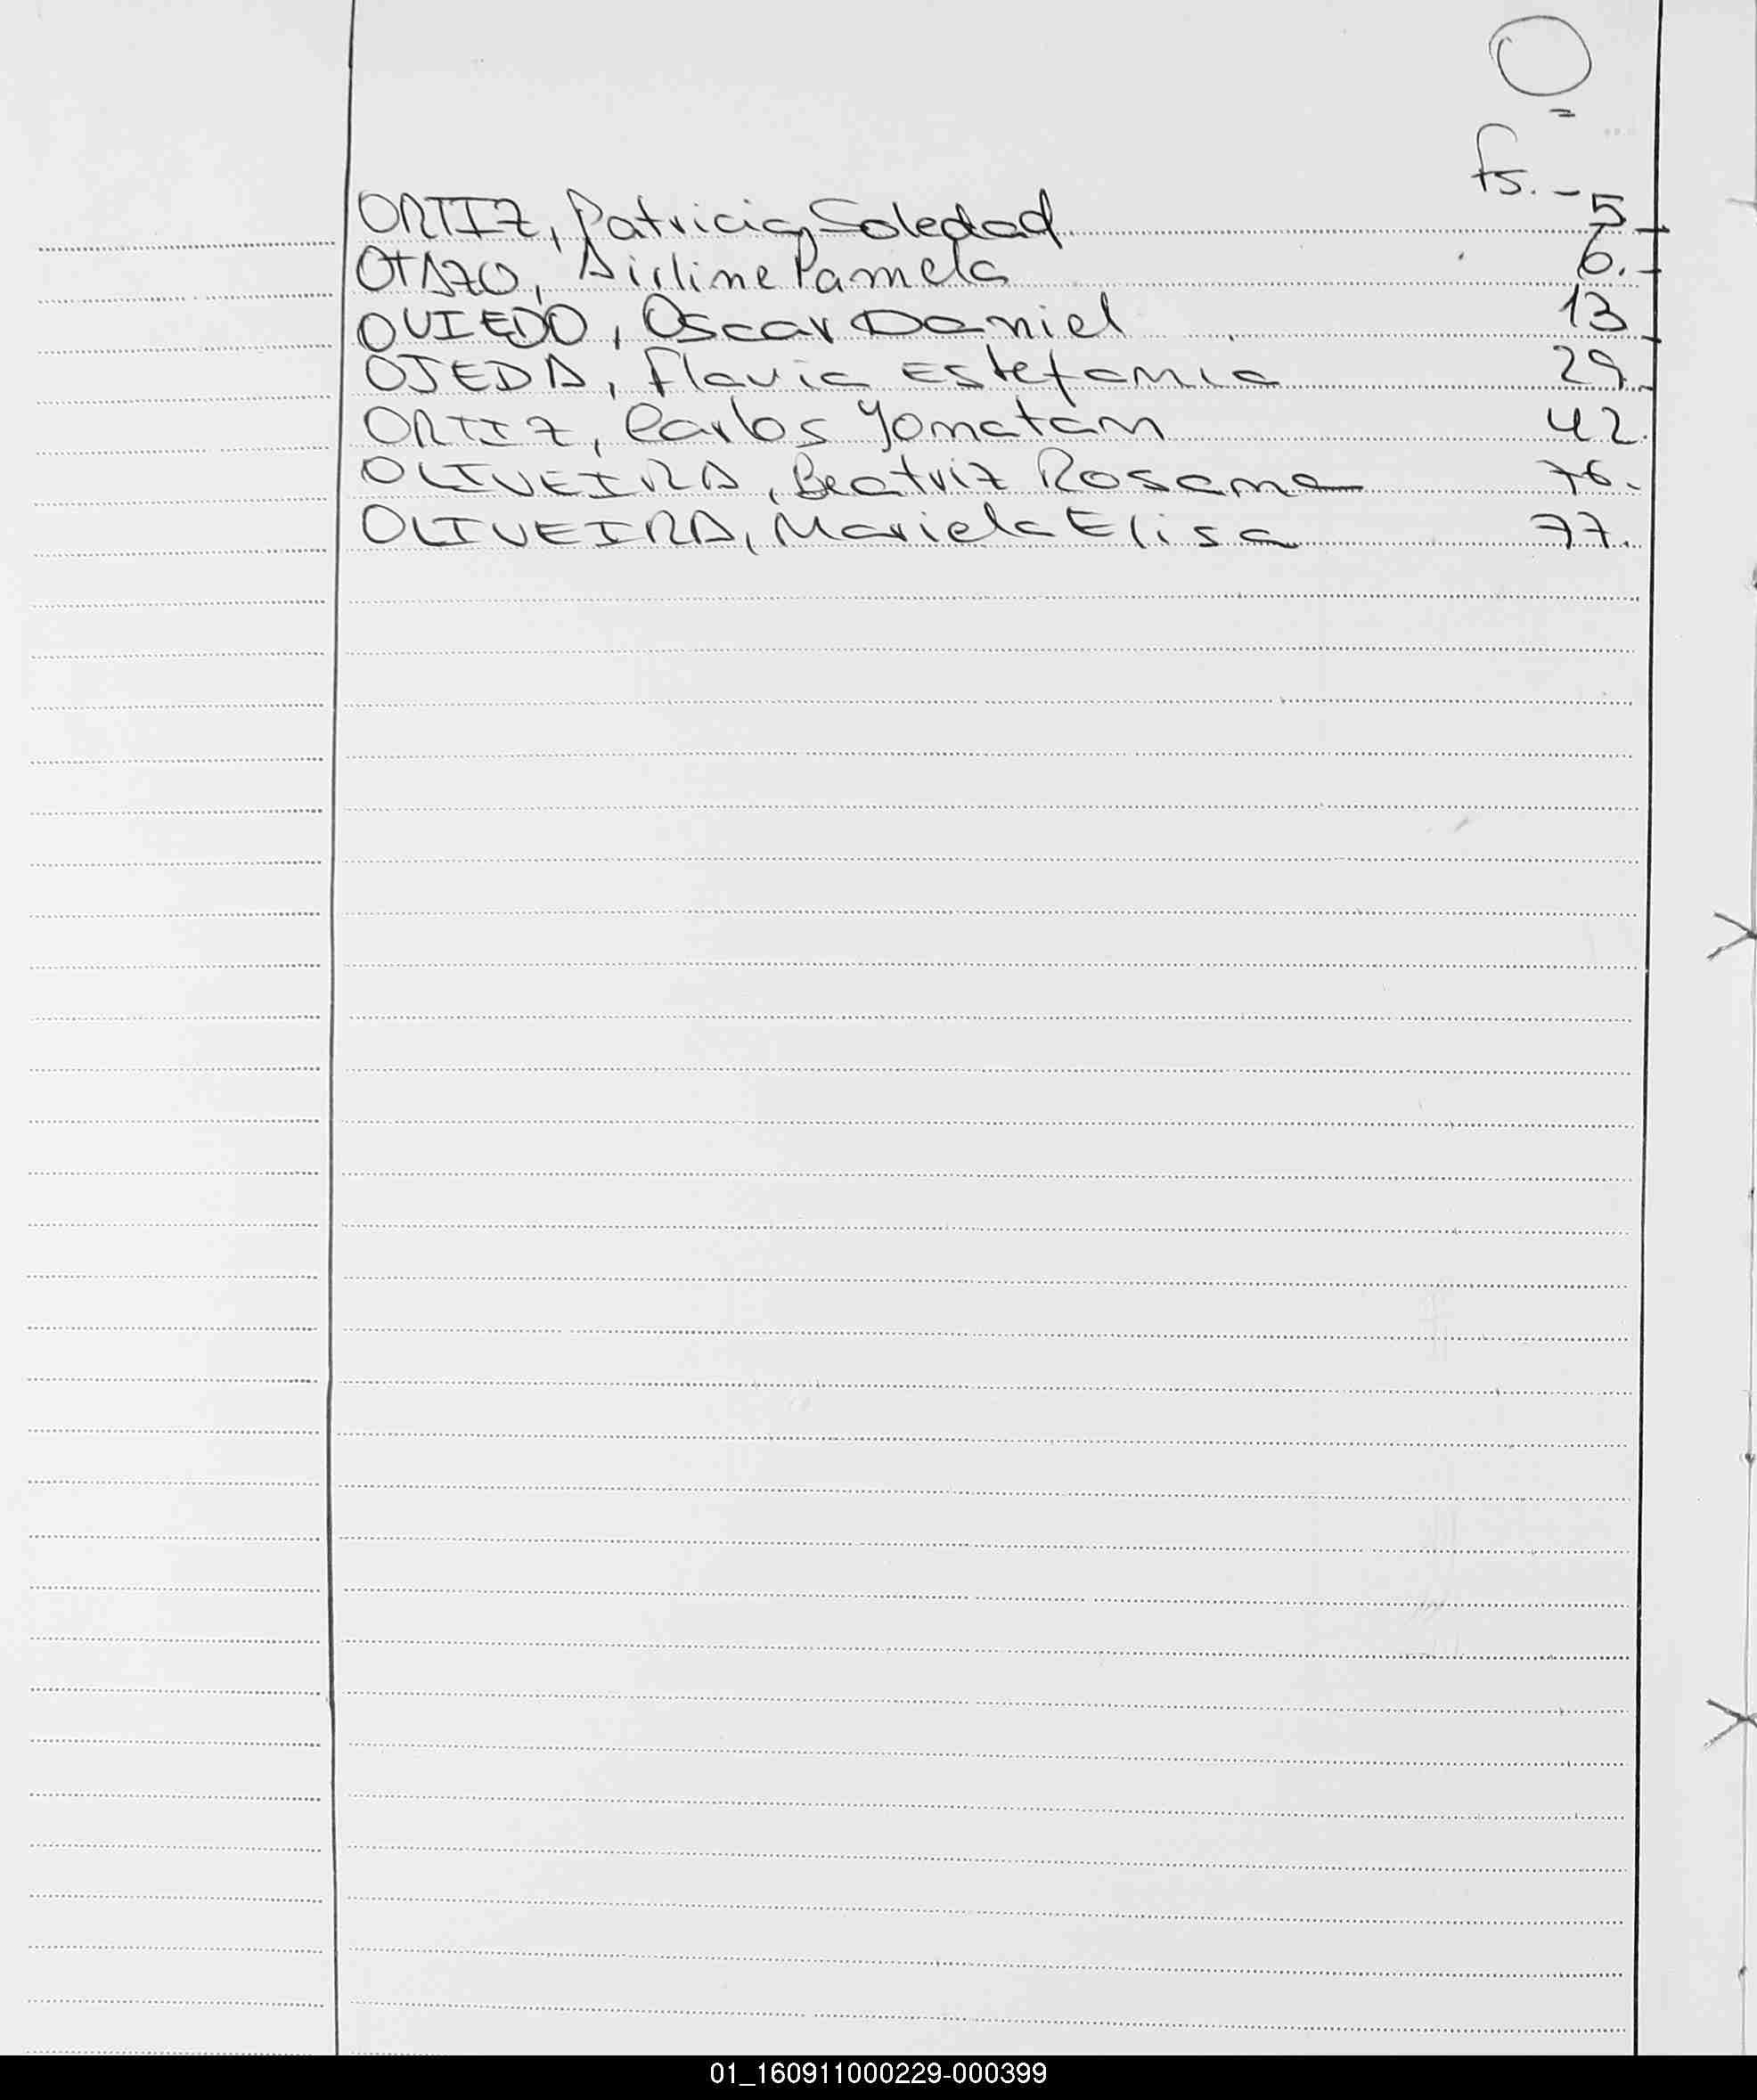 O
fs. -
ORTIZ, Patricia Soledad 5
OTAZO, Airline Pamela 6.
OVIEDO, Oscar Daniel 13
OJEDA, Flavia Estefania 29
ORTIZ, Carlos Yonatan 42.
OLIVEIRA, Beatriz Rosana 76.
OLIVEIRA, Mariela Elisa 77.
01_160911000229-000399